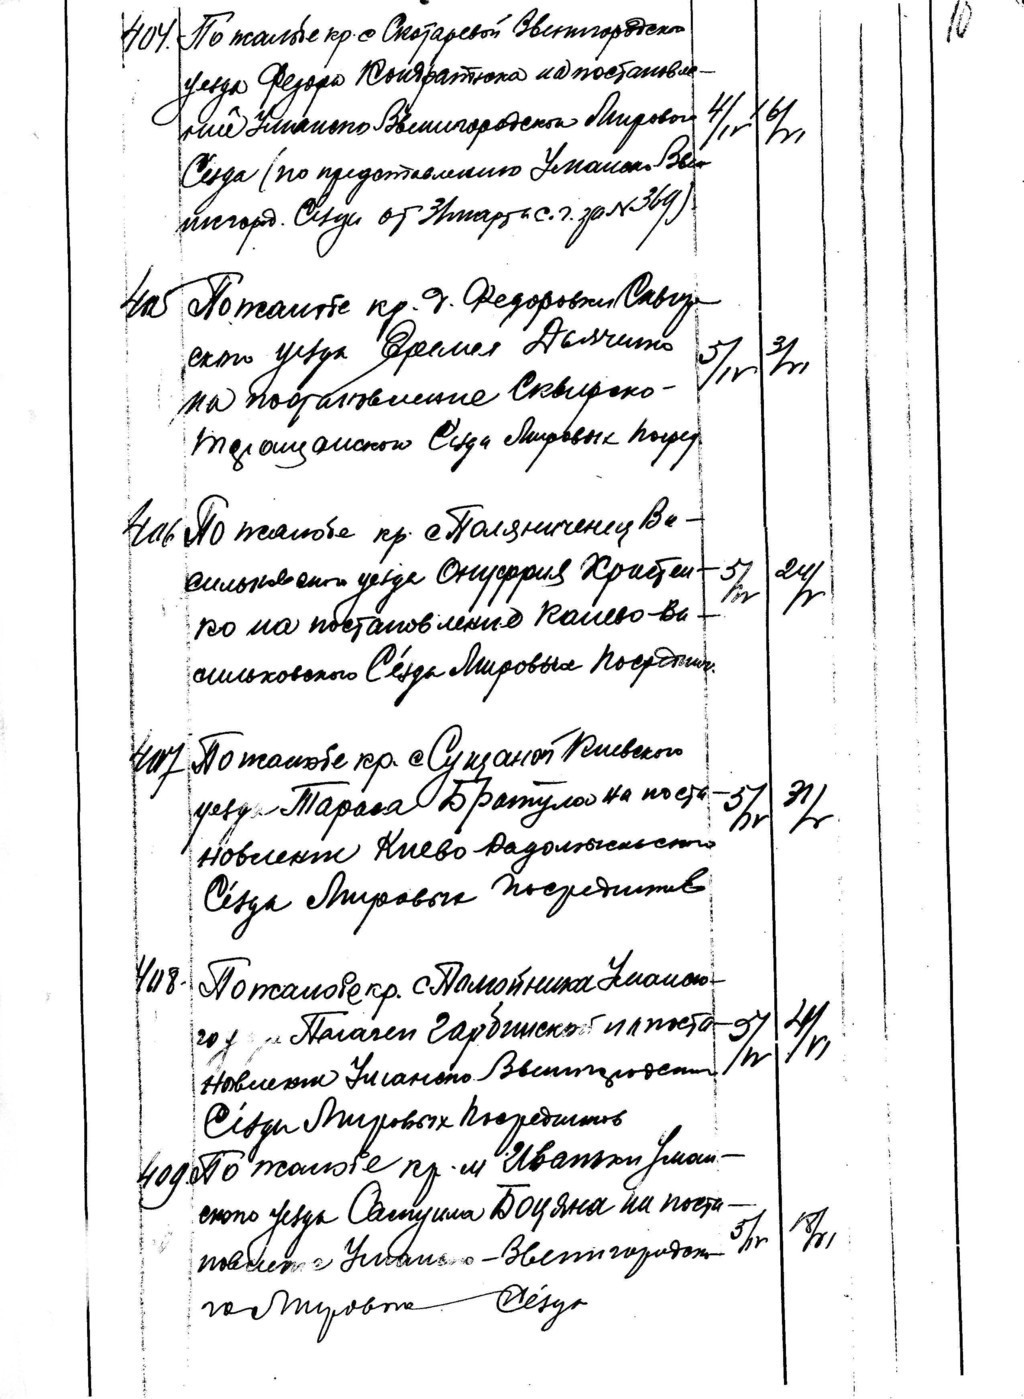 10
404. По жалобе кр. с Скотаревой Звенигородскаго
уезда Федора Кондратюка на постановле-
ние Уманско Звенигородскаго Мироваго 4/IV 16/VI
Сезда (по представлению Уманско Зве-
нигород. Сезда от 31 марта с. г. за N 369).
405 По жалобе кр. д. Федоровки Сквир-
скаго уезда Еремея Дьяченко 5/IV 3/VI
на постановление Сквирско-
Таращанского Сезда Мировых Посред.
406 По жалобе кр. с Поляниченец Ва-
сильковскаго уезда Онуфрия Христен- 5/IV 24/V
ко на постановление Канево-Ва-
сильковского Сезда Мировых Посредник.
407 По жалобе кр. с Сущаной Киевского
уезда Тараса Братула на поста- 5/IV 31/V
новление Киево Радомысльскаго
Сезда Мировых Посредников
408. По жалобе кр. с Помойника Уманско-
го Пелагеи Гарбинской на поста- 5/IV 24/VI
новление Уманско Звенигородскаго
Сезда Мировых Посредников
409. По жалобе кр. м Иваньки Уман-
скаго уезда Самуила Боцяна на поста- 5/IV 18/VI
новление Уманско-Звенигородска-
го Мироваго Сезда